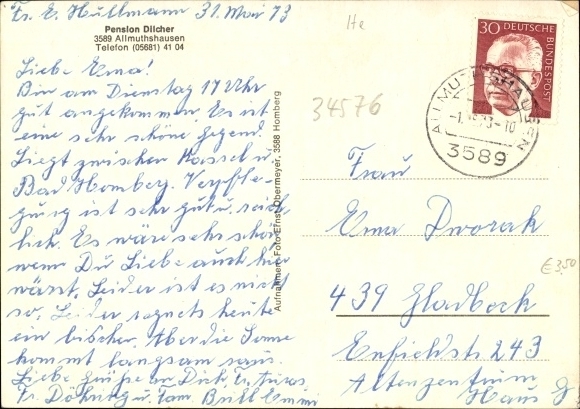 Fr. E. Hüllmann 31. Mai 73
Pension Dilcher
3589 Allmuthshausen
Telefon (05681) 41 04
Liebe Erna!
Bin am Dienstag 17 Uhr
gut angekommen. Es ist
eine sehr schöne gegend.
Liegt zwischen Kassel u.
Bad Homberg. Verpfle-
gung ist sehr gut u. reich
lich. Es wäre sehr schön
wenn Du Liebe auch hier
wärst. Leider ist es nicht
so. Leider regnets heute
ein bischen. Aber die Sonne
kommt langsam raus.
Liebe Grüße an Dich,
Fr. u. Fam.
Aufnahmen: Foto Ernst Obermeyer, 3588 Homberg
He
34576
30 DEUTSCHE BUNDESPOST
ALLMUTHSHAUSEN
3589
Frau
Erna Dworak
439 Gladbeck
Enfieldstr 243
Altenzentrum
Haus
€3,50